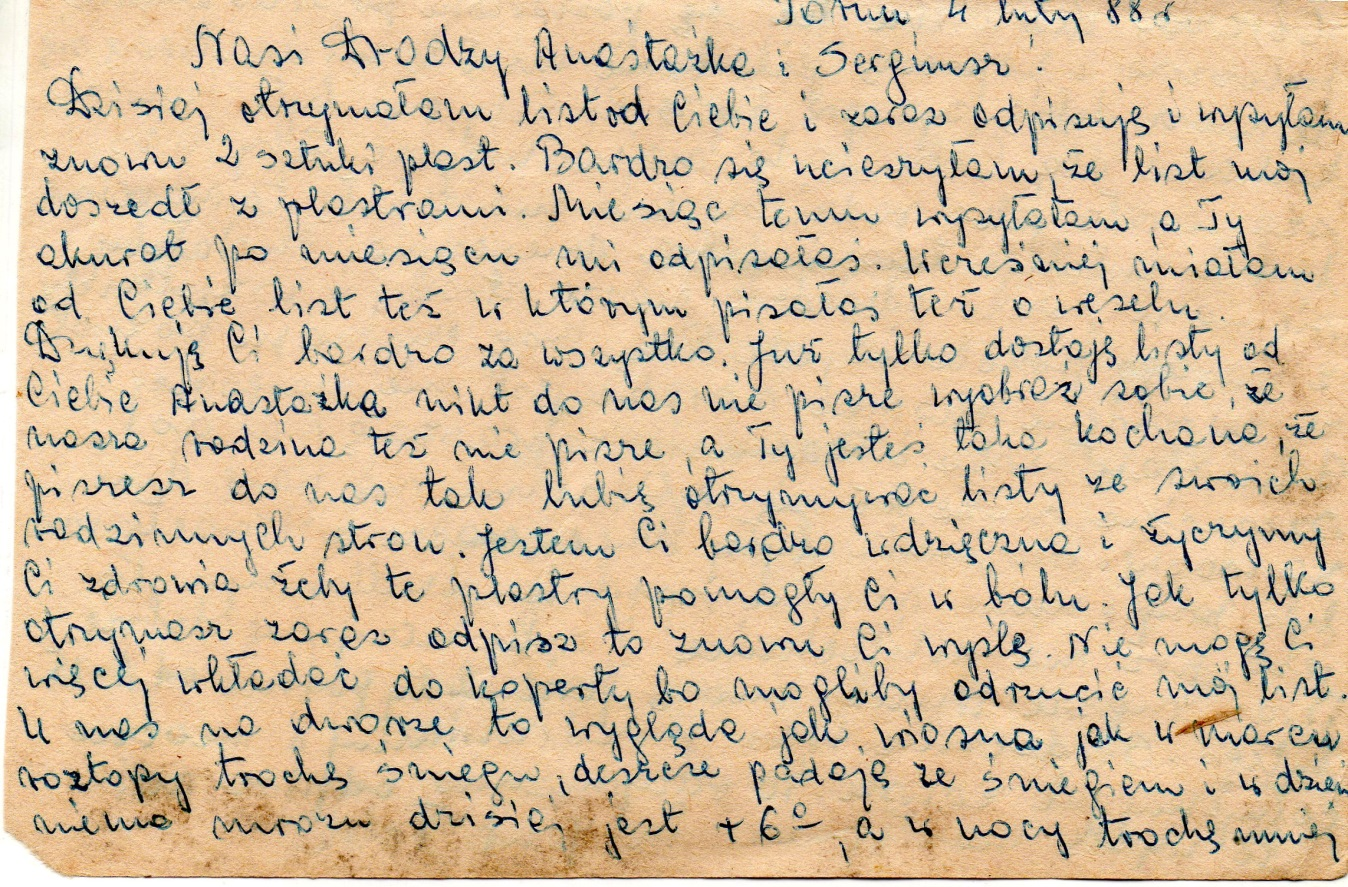 Toruń 4 luty 88 r
Nasi Drodzy Anastazka i Sergiusz!
Dzisiej otrzymałam list od Ciebie i zaraz odpisuję i wysyłam
znowu 2 sztuki plast. Bardzo się ucieszyłam, że list mój
doszedł z plastrami. Miesiąc temu wysyłałam, a Ty
akurat po miesiącu mi odpisałaś. Wcześniej miałam
od Ciebie list też w którym pisałaś też o weselu.
Dziękuję Ci bardzo za wszystko. Już tylko dostaję listy od
Ciebie Anastazka nikt do nas nie pisze wyobraź sobie, że
nasza rodzina też nie pisze, a Ty jesteś taka kochana, że
piszesz do nas tak lubię otrzymywać listy ze swoich
rodzinnych stron. Jestem Ci bardzo wdzięczna i życzymy
Ci zdrowia żeby te plastry pomogły Ci w bólu. Jak tylko
otrzymasz zaraz odpisz to znowu Ci wyślę. Nie mogę Ci
więcej wkładać do koperty bo mogliby odrzucić mój list.
U nas na dworze to wygląda jak wiosna jak w marcu
roztopy trochę śniegu, deszcze padają ze śniegiem i w dzień
niema mrozu dzisiej jest +6°, a w nocy trochę mniej